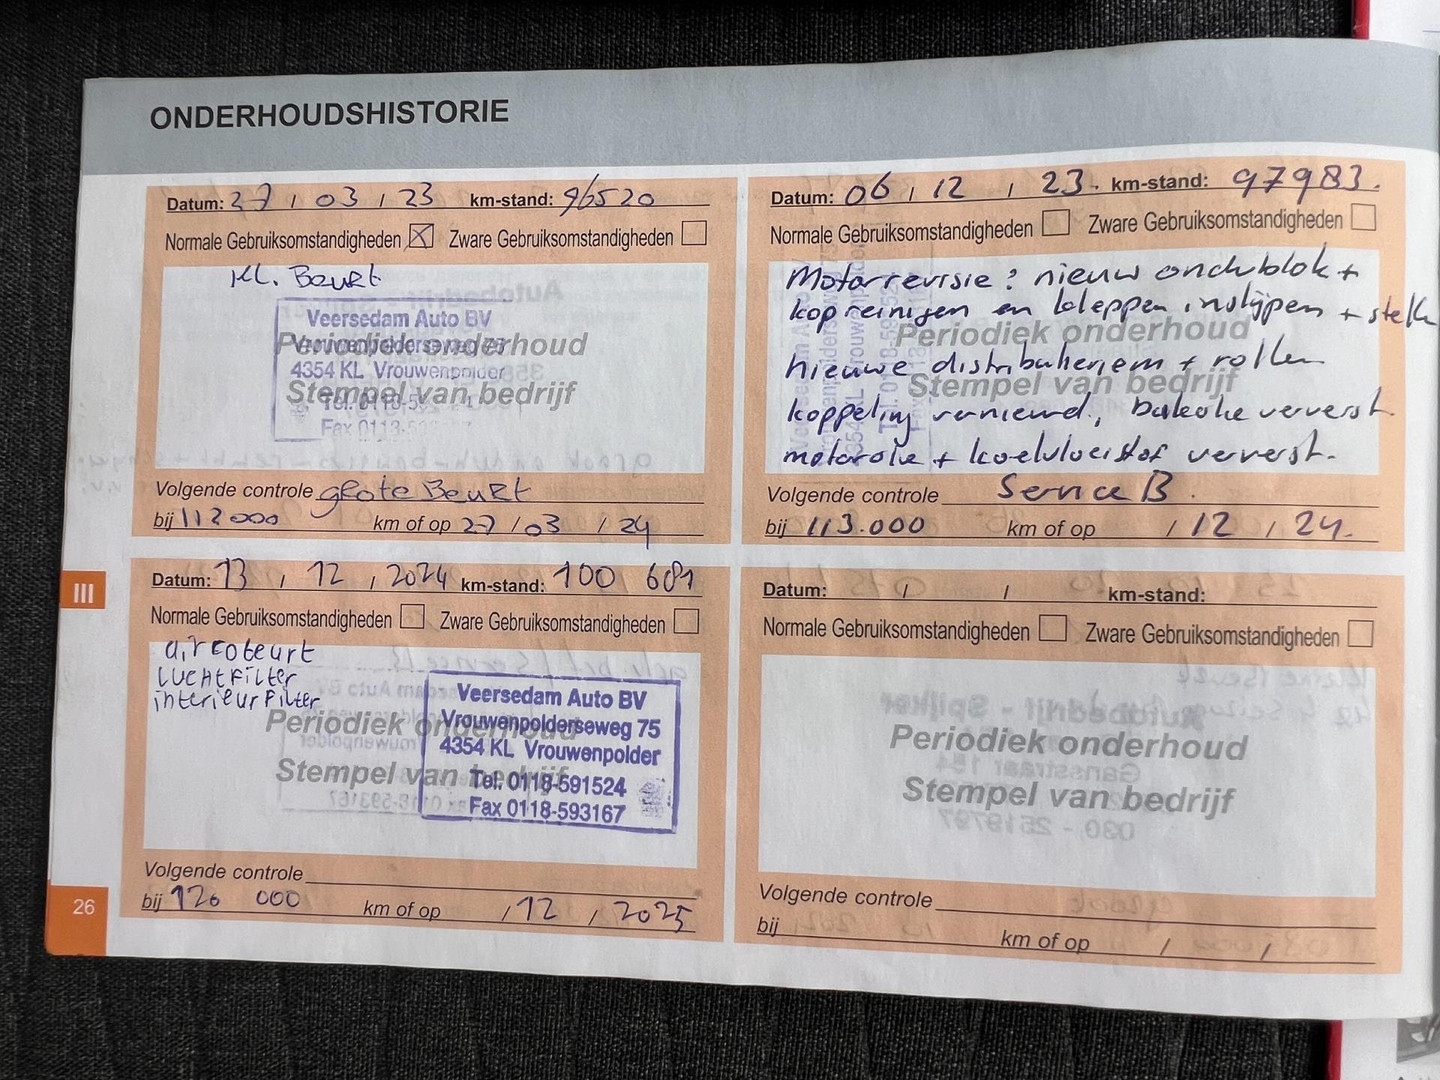 ONDERHOUDSHISTORIE
Datum: 27 / 03 / 23 km-stand: 96520
Normale Gebruiksomstandigheden X Zware Gebruiksomstandigheden
Kl. Beurt
Veersedam Auto BV
Periodiek onderhoud
Vrouwenpolderseweg 75
4354 KL Vrouwenpolder
Stempel van bedrijf
Tel. 0118-5
Volgende controle grote Beurt
bij 112000 km of op 27 / 03 / 24
Datum: 06 / 12 / 23. km-stand: 97983.
Normale Gebruiksomstandigheden Zware Gebruiksomstandigheden
Motorrevisie: nieuw onderblok +
kop reinigen en kleppen inslijpen + stellen
Periodiek onderhoud
nieuwe distributieriem + rollen
Stempel van bedrijf
koppeling vernieuwd, bakolie ververst
motorolie + koelvloeistof ververst.
Volgende controle Service B.
bij 113.000 km of op / 12 / 24.
III
Datum: 13 / 12 / 2024 km-stand: 100 681
Normale Gebruiksomstandigheden Zware Gebruiksomstandigheden
aircobeurt
luchtfilter
interieurfilter
Periodiek onderhoud
Stempel van bedrijf
Veersedam Auto BV
Vrouwenpolderseweg 75
4354 KL Vrouwenpolder
Tel. 0118-591524
Fax 0118-593167
Volgende controle
bij 120 000 km of op / 12 / 2025
Datum: / / km-stand:
Normale Gebruiksomstandigheden Zware Gebruiksomstandigheden
Periodiek onderhoud
Stempel van bedrijf
Volgende controle
bij km of op / /
26